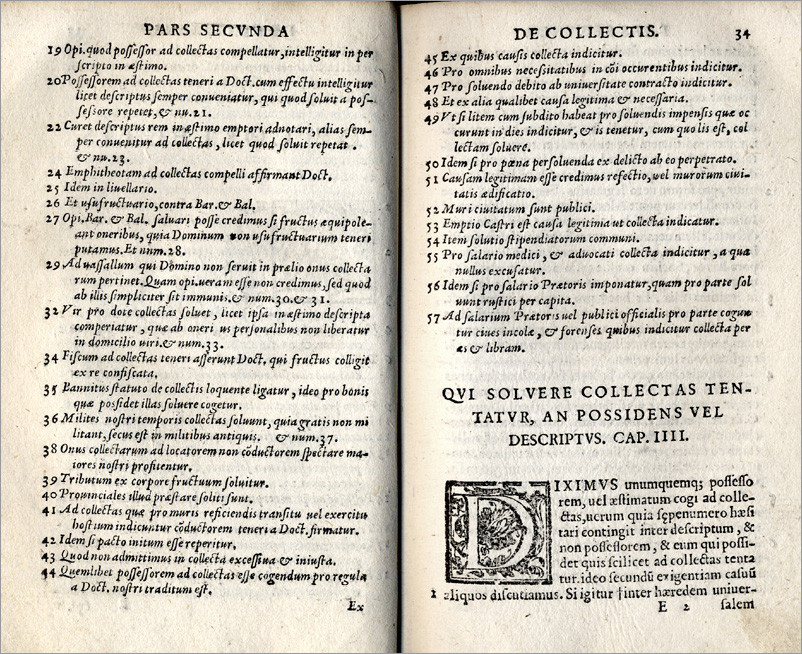 PARS SECVNDA
19 Opi. quod possessor ad collectas compellatur, intelligitur in per
scripto in æstimo.
20 Possessorem ad collectas teneri a Doct. cum effectu intelligitur
licet descriptus semper conueniatur, qui quod soluit a pos-
sessore repetet, & nu. 21.
22 Curet descriptus rem in æstimo emptori adnotari, alias sem-
per conuenitur ad collectas, licet quod soluit repetat.
& nu. 23.
24 Emphitheotam ad collectas compelli affirmant Doct.
25 Idem in liuellario.
26 Et usufructuario, contra Bar. & Bal.
27 Opi. Bar. & Bal. saluari posse credimus si fructus æquipole-
ant oneribus, quia Dominum non usufructuarium teneri
putamus. Et num. 28.
29 Ad uassallum qui Domino non seruit in prælio onus collecta
rum pertinet. Quam opi. ueram esse non credimus, sed quod
ab illis simpliciter sit immunis. & num. 30. & 31.
32 Vir pro dote collectas soluet, licet ipsa in æstimo descripta
comperiatur, quæ ab oneri us personalibus non liberatur
in domicilio uiri. & num. 33.
34 Fiscum ad collectas teneri asserunt Doct. qui fructus colligit
ex re confiscata.
35 Bannitus statuto de collectis loquente ligatur, ideo pro bonis
quæ possidet illas soluere cogetur.
36 Milites nostri temporis collectas soluunt, quia gratis non mi
litant, secus est in militibus antiquis. & num. 37.
38 Onus collectarum ad locatorem non cōductorem spectare ma-
iores nostri profitentur.
39 Tributum ex corpore fructuum soluitur.
40 Prouinciales illud præstare soliti sunt.
41 Ad collectas quæ pro muris reficiendis transitu uel exercitu
hostium indicuntur cōductorem teneri a Doct. firmatur.
42 Idem si pacto initum esse reperitur.
43 Quod non admittimus in collecta excessiua & iniusta.
44 Quemlibet possessorem ad collectas esse cogendum pro regula
a Doct. nostri traditum est.
Ex
DE COLLECTIS. 34
45 Ex quibus causis collecta indicitur.
46 Pro omnibus necessitatibus in cōi occurentibus indicitur.
47 Pro soluendo debito ab uniuersitate contracto indicitur.
48 Et ex alia qualibet causa legitima & necessaria.
49 Vt si litem cum subdito habeat pro soluendis impensis quæ oc
currunt in dies indicitur, & is tenetur, cum quo lis est, col
lectam soluere.
50 Idem si pro pœna persoluenda ex delicto ab eo perpetrato.
51 Causam legitimam esse credimus refectio, uel murorum ciui-
tatis ædificatio.
52 Muri ciuitatum sunt publici.
53 Emptio Castri est causa legitima ut collecta indicatur.
54 Item solutio stipendiatorum communi.
55 Pro salario medici, & aduocati collecta indicitur, a qua
nullus excusatur.
56 Idem si pro salario Prætoris imponatur, quam pro parte sol
uunt rustici per capita.
57 Ad salarium Prætoris uel publici officialis pro parte cogun
tur ciues incolæ, & forenses quibus indicitur collecta per
æs & libram.
QVI SOLVERE COLLECTAS TEN-
TATVR, AN POSSIDENS VEL
DESCRIPTVS. CAP. IIII.
DIXIMVS unumquemq; possesso
rem, uel æstimatum cogi ad colle-
ctas, uerum quia sępenumero hæsi
tari contingit inter descriptum, &
non possessorem, & eum qui possi-
det quis scilicet ad collectas tenta
tur. ideo secundū exigentiam casuū
1 aliquos discutiamus. Si igitur †inter hæredem uniuer-
E 2 salem